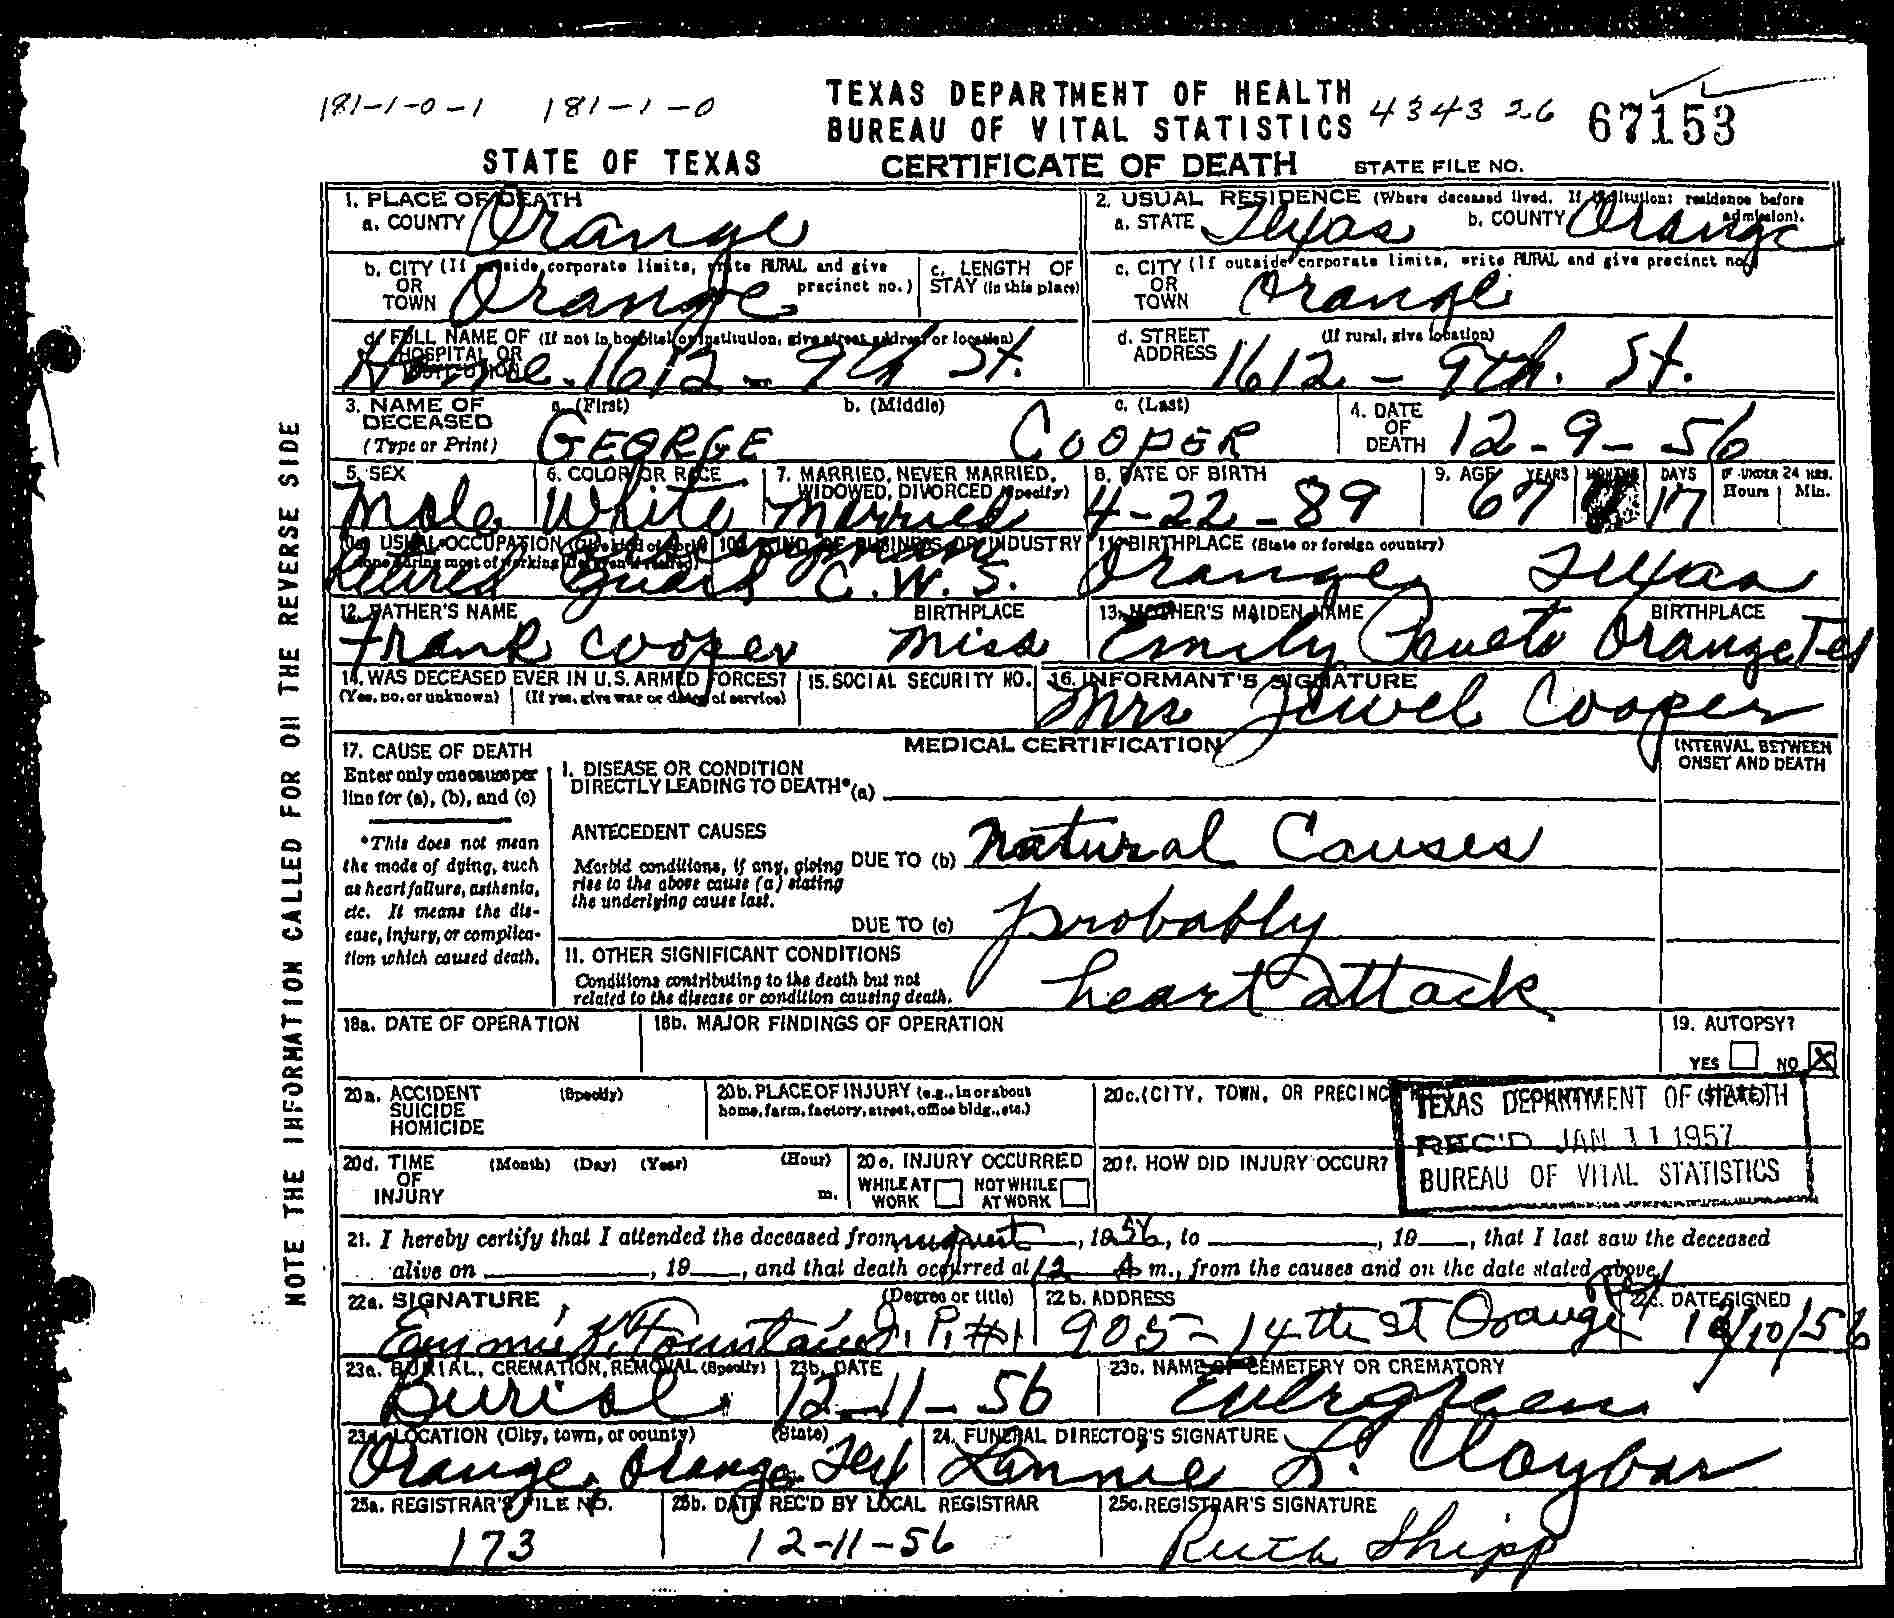 181-1-0-1 181-1-0
TEXAS DEPARTMENT OF HEALTH
BUREAU OF VITAL STATISTICS
434326 67153
STATE OF TEXAS CERTIFICATE OF DEATH STATE FILE NO.
NOTE THE INFORMATION CALLED FOR ON THE REVERSE SIDE
1. PLACE OF DEATH
a. COUNTY Orange
2. USUAL RESIDENCE (Where deceased lived. If institution: residence before admission).
a. STATE Texas b. COUNTY Orange
b. CITY (If outside corporate limits, write RURAL and give precinct no.)
OR
TOWN Orange
c. LENGTH OF STAY (in this place)
c. CITY (If outside corporate limits, write RURAL and give precinct no.)
OR
TOWN Orange
d. FULL NAME OF (If not in hospital or institution, give street address or location)
HOSPITAL OR
INSTITUTION Home - 1612 - 9th St.
d. STREET (If rural, give location)
ADDRESS 1612 - 9th. St.
3. NAME OF DECEASED (Type or Print)
a. (First) GEORGE b. (Middle) c. (Last) COOPER
4. DATE OF DEATH 12-9-56
5. SEX Male
6. COLOR OR RACE White
7. MARRIED, NEVER MARRIED, WIDOWED, DIVORCED (Specify) Married
8. DATE OF BIRTH 4-22-89
9. AGE YEARS 67 MONTHS DAYS 17 IF UNDER 24 HRS. Hours Min.
10a. USUAL OCCUPATION (Give kind of work done during most of working life, even if retired) Retired Guard
10b. KIND OF BUSINESS OR INDUSTRY C.W.S.
11. BIRTHPLACE (State or foreign country) Orange, Texas
12. FATHER'S NAME Frank Cooper BIRTHPLACE Miss
13. MOTHER'S MAIDEN NAME Emily BIRTHPLACE Orange Tex
14. WAS DECEASED EVER IN U.S. ARMED FORCES?
(Yes, no, or unknown) (If yes, give war or dates of service)
15. SOCIAL SECURITY NO.
16. INFORMANT'S SIGNATURE
Mrs Jewel Cooper
17. CAUSE OF DEATH
Enter only one cause per
line for (a), (b), and (c)
*This does not mean
the mode of dying, such
as heart failure, asthenia,
etc. It means the dis-
ease, injury, or complica-
tion which caused death.
MEDICAL CERTIFICATION
INTERVAL BETWEEN
ONSET AND DEATH
I. DISEASE OR CONDITION
DIRECTLY LEADING TO DEATH* (a)
ANTECEDENT CAUSES
Morbid conditions, if any, giving
rise to the above cause (a) stating
the underlying cause last.
DUE TO (b) Natural Causes
DUE TO (c) probably
II. OTHER SIGNIFICANT CONDITIONS
Conditions contributing to the death but not
related to the disease or condition causing death.
heart attack
18a. DATE OF OPERATION 18b. MAJOR FINDINGS OF OPERATION
19. AUTOPSY?
YES NO X
20a. ACCIDENT (Specify)
SUICIDE
HOMICIDE
20b. PLACE OF INJURY (e.g., in or about
home, farm, factory, street, office bldg., etc.)
20c. (CITY, TOWN, OR PRECINCT (COUNTY) (STATE)
TEXAS DEPARTMENT OF HEALTH
REC'D JAN 11 1957
BUREAU OF VITAL STATISTICS
20d. TIME (Month) (Day) (Year) (Hour)
OF
INJURY m.
20e. INJURY OCCURRED
WHILE AT WORK NOT WHILE AT WORK
20f. HOW DID INJURY OCCUR?
21. I hereby certify that I attended the deceased from inquest, 1956, to , 19 , that I last saw the deceased
alive on , 19 , and that death occurred at 12 A m., from the causes and on the date stated above.
22a. SIGNATURE (Degree or title)
Emmie K. Fountain J.P. #1
22b. ADDRESS
905 - 14th St Orange Tex
22c. DATE SIGNED
12/10/56
23a. BURIAL, CREMATION, REMOVAL (Specify)
Burial
23b. DATE
12-11-56
23c. NAME OF CEMETERY OR CREMATORY
Evergreen
23d. LOCATION (City, town, or county) (State)
Orange, Orange Tex
24. FUNERAL DIRECTOR'S SIGNATURE
Lannie L. Claybar
25a. REGISTRAR'S FILE NO.
173
25b. DATE REC'D BY LOCAL REGISTRAR
12-11-56
25c. REGISTRAR'S SIGNATURE
Ruth Shipp